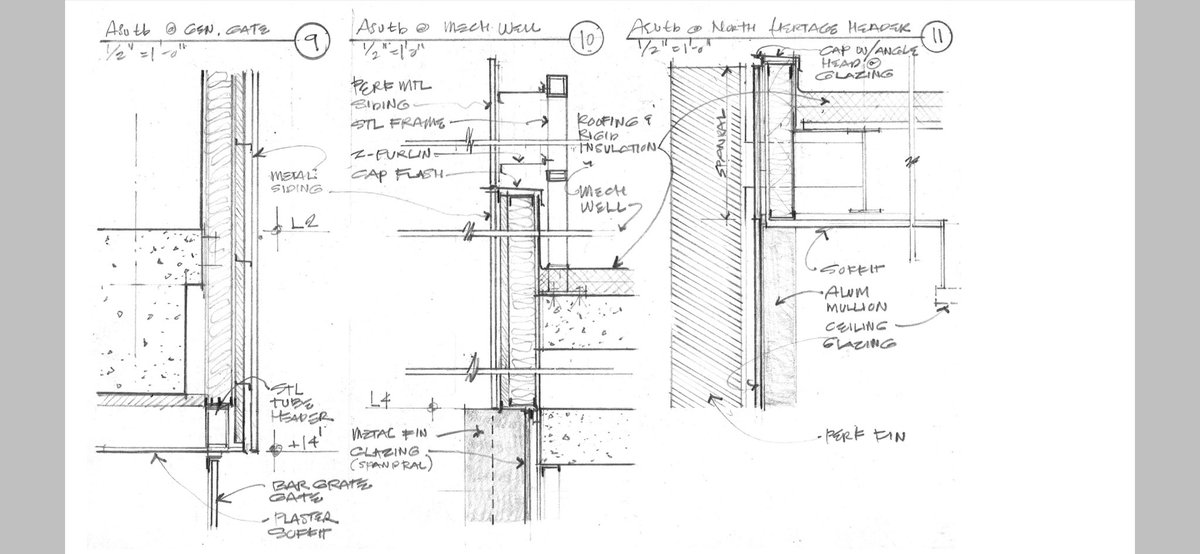 Asutb @ GEN. GATE
9
1/2" = 1'-0"
METAL
SIDING
L2
STL
TUBE
HEADER
+14'
BAR GRATE
GATE
PLASTER
SOFFIT
Asutb @ MECH WELL
10
1/2" = 1'-0"
PERF MTL
SIDING
STL FRAME
Z-FURLIN
CAP FLASH
ROOFING &
RIGID
INSULATION
MECH
WELL
L4
METAL FIN
GLAZING
(SPANDRAL)
Asutb @ NORTH HERTAGE HEADER
11
1/2" = 1'-0"
CAP W/ANGLE
HEAD @
GLAZING
SPANRAL
SOFFIT
ALUM
MULLION
CEILING
GLAZING
PERF FIN